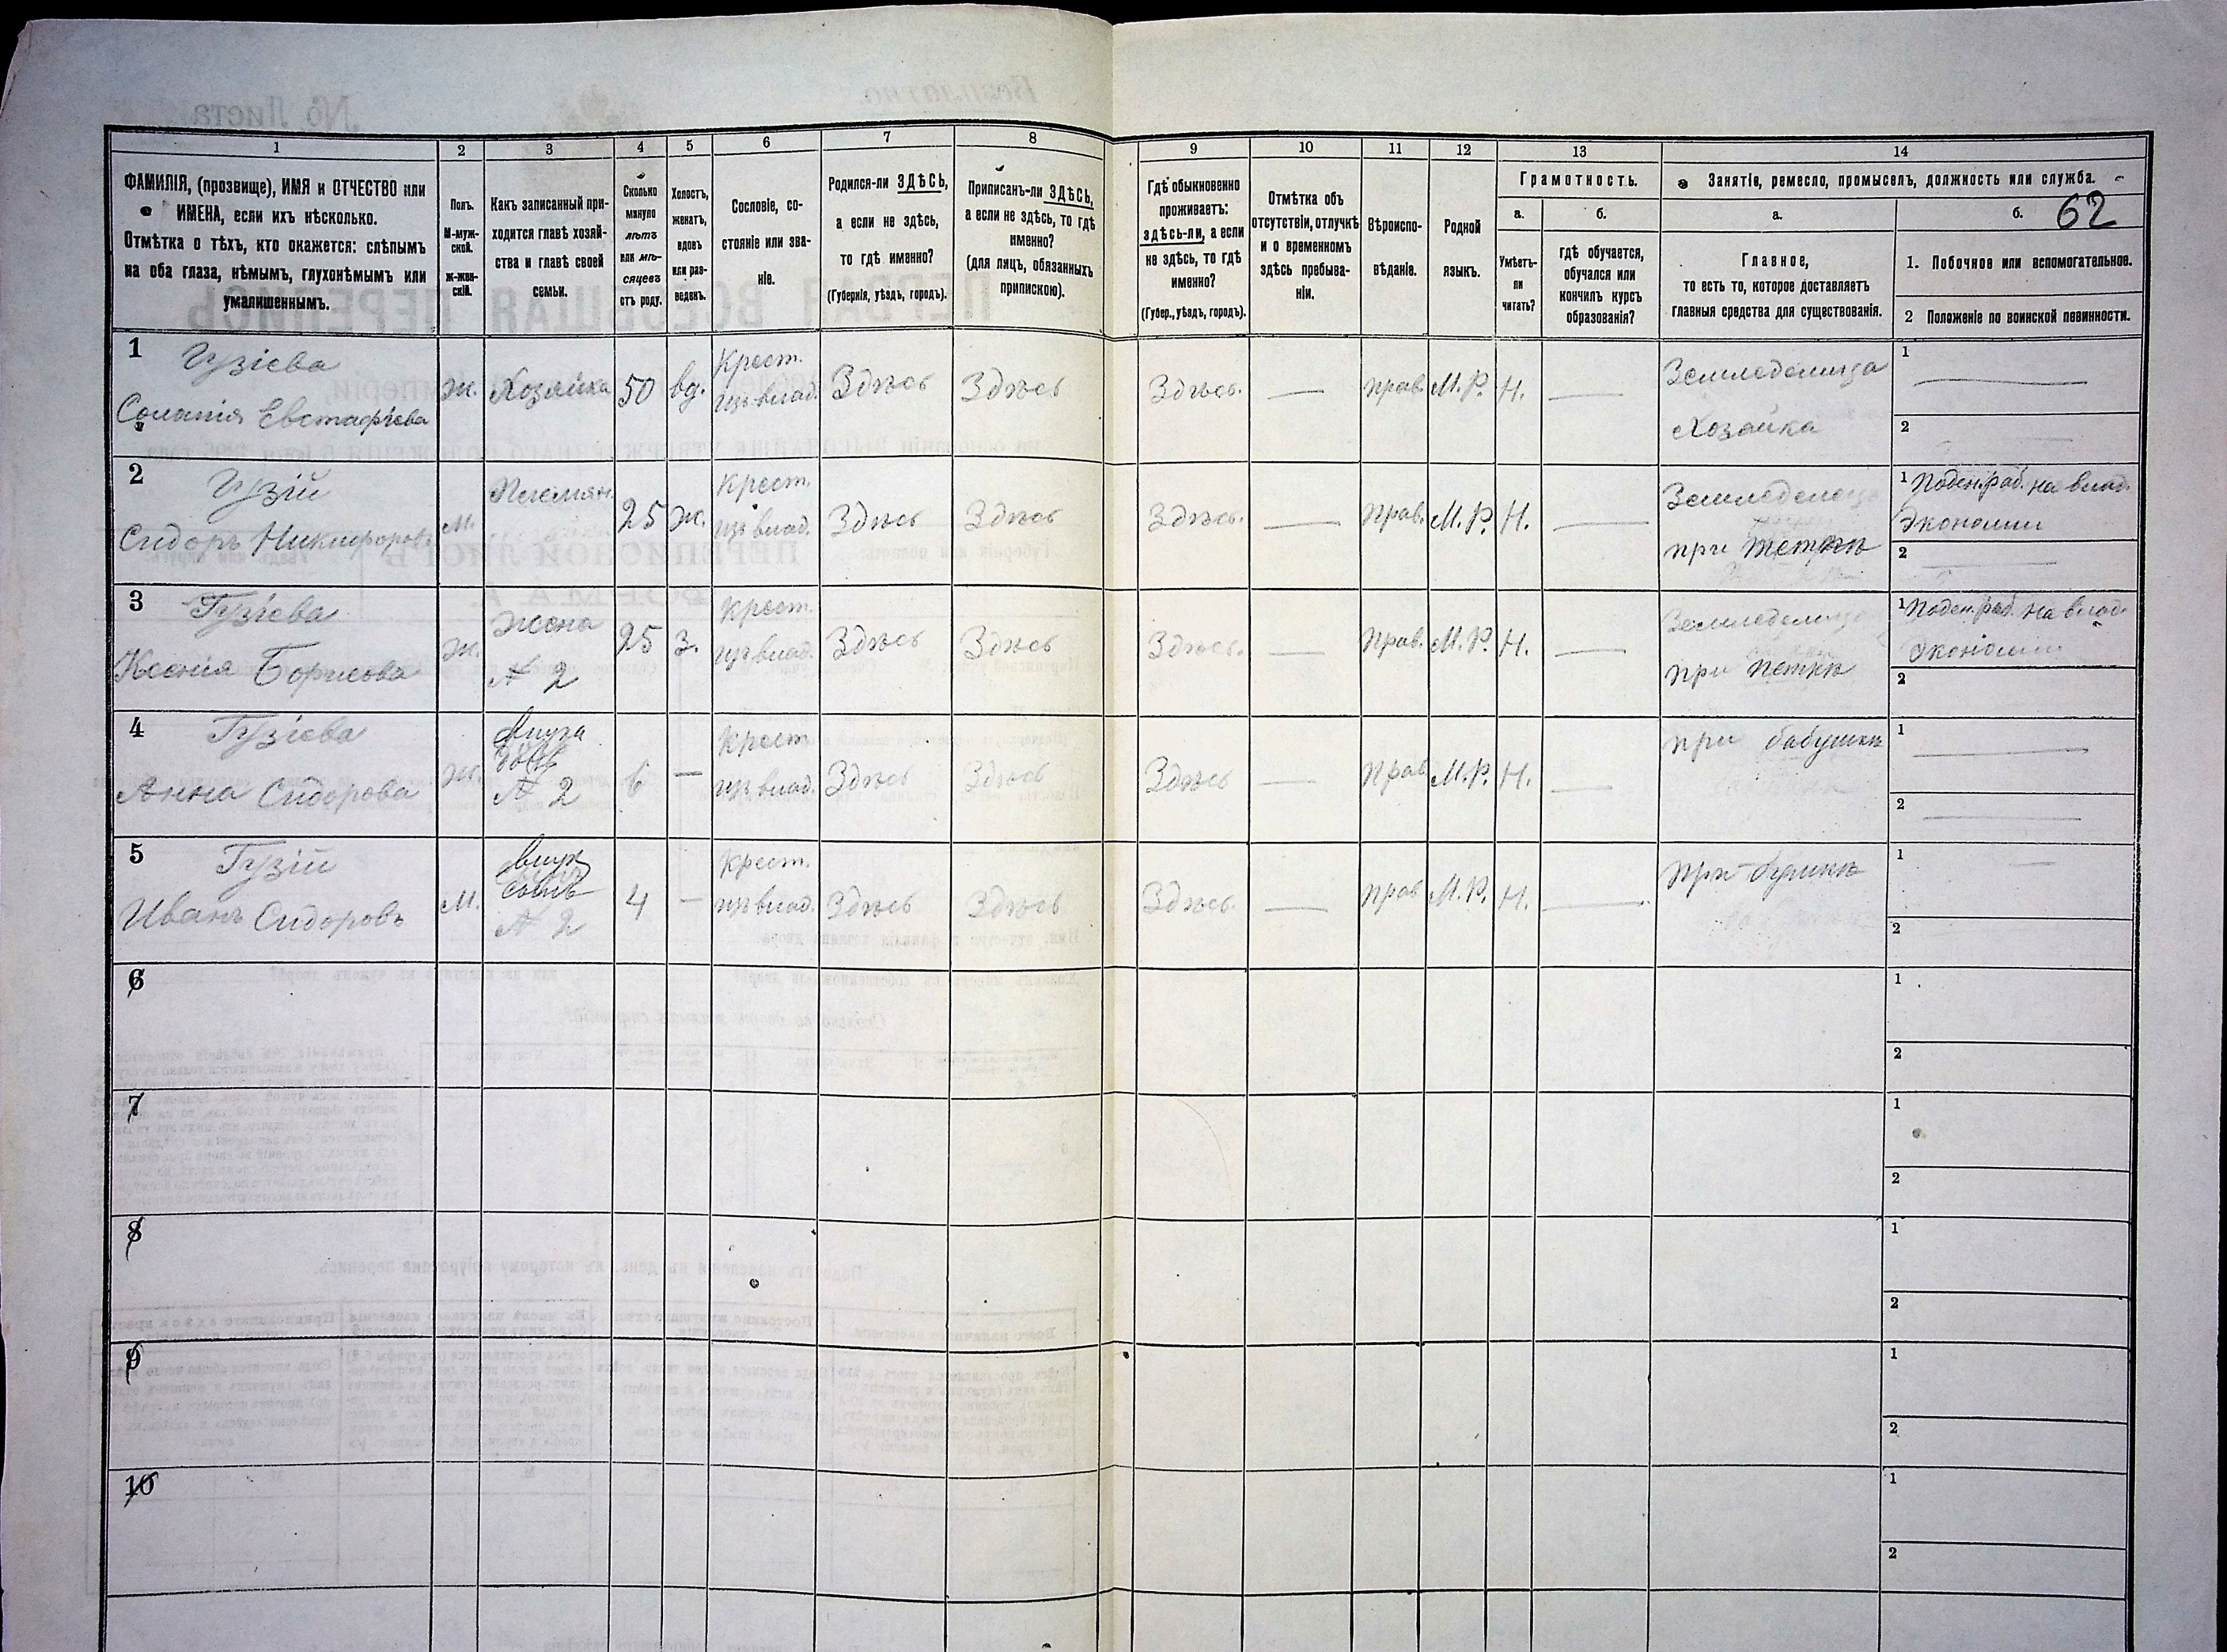 62
1
2
3
4
5
6
7
8
9
10
11
12
13
14
ФАМИЛІЯ, (прозвище), ИМЯ и ОТЧЕСТВО или
ИМЕНА, если ихъ нѣсколько.
Отмѣтка о тѣхъ, кто окажется: слѣпымъ
на оба глаза, нѣмымъ, глухонѣмымъ или
умалишеннымъ.
Полъ.
М-муж-
ской.
ж-жен-
скій.
Какъ записанный при-
ходится главѣ хозяй-
ства и главѣ своей
семьи.
Сколько
минуло
лѣтъ
или мѣ-
сяцевъ
отъ роду.
Холостъ,
женатъ,
вдовъ
или раз-
веденъ.
Сословіе, со-
стояніе или зва-
ніе.
Родился-ли ЗДѢСЬ,
а если не здѣсь,
то гдѣ именно?
(Губернія, уѣздъ, городъ).
Приписанъ-ли ЗДѢСЬ,
а если не здѣсь, то гдѣ
именно?
(для лицъ, обязанныхъ
припискою).
Гдѣ обыкновенно
проживаетъ:
здѣсь-ли, а если
не здѣсь, то гдѣ
именно?
(Губер., уѣздъ, городъ).
Отмѣтка объ
отсутствіи, отлучкѣ
и о временномъ
здѣсь пребыва-
ніи.
Вѣроиспо-
вѣданіе.
Родной
языкъ.
Грамотность.
а.
б.
Умѣетъ-
ли
читать?
гдѣ обучается,
обучался или
кончилъ курсъ
образованія?
Занятіе, ремесло, промыселъ, должность или служба.
а.
б.
Главное,
то есть то, которое доставляетъ
главныя средства для существованія.
1. Побочное или вспомогательное.
2 Положеніе по воинской повинности.
1 Гузіева
Евстафіева
ж.
Хозяйка
50
вд.
Крест.
изъ влад.
Здѣсь
Здѣсь
Здѣсь.
—
прав.
М. Р.
Н.
—
Земледелица
Хозяйка
1 —
2
2 Гузій
Сидоръ Никифоровъ
М.
Племян.
25
ж.
Крест.
изъ влад.
Здѣсь
Здѣсь
Здѣсь.
—
Прав.
М. Р.
Н.
—
Земледелецъ
при тетки
1 Поден. раб. на влад.
Экономии
2 —
3 Гузіева
Ксенія Борисова
ж.
Жена
№ 2
25
З.
Крест.
изъ влад.
Здѣсь
Здѣсь
Здѣсь.
—
Прав.
М. Р.
Н.
—
Земледелица
при тетки
1 Поден. раб. на влад.
Экономии
2
4 Гузіева
Анна Сидорова
ж.
внука
дочь
№ 2
6
—
Крест.
изъ влад.
Здѣсь
Здѣсь
Здѣсь
—
Прав.
М. Р.
Н.
—
при бабушки
1 —
2 —
5 Гузій
Иванъ Сидоровъ
М.
внук
сынъ
№ 2
4
—
Крест.
изъ влад.
Здѣсь
Здѣсь
Здѣсь.
—
прав
М. Р.
Н.
—
1 —
2
6
1
2
7
1
2
8
1
2
9
1
2
10
1
2